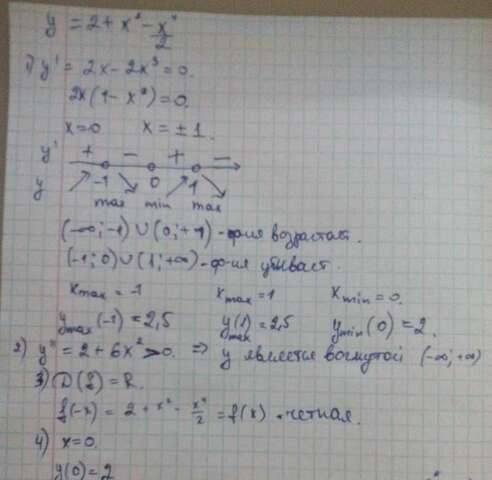 y = 2 + x² - x⁴/2
1) y' = 2x - 2x³ = 0.
2x(1 - x²) = 0.
x = 0 x = ± 1.
y' + - + -
y -1 0 1
max min max
(-∞; -1) ∪ (0; +1) - ф-ия возрастает.
(-1; 0) ∪ (1; +∞) - ф-ия убывает.
x max = -1 x max = 1 x min = 0.
y max (-1) = 2,5 y max (1) = 2,5 y min (0) = 2.
2) y'' = 2 + 6x² > 0. ⇒ y является вогнутой (-∞; +∞)
3) D(2) = R.
f(-x) = 2 + x² - x⁴/2 = f(x) - четная.
4) x = 0.
y(0) = 2